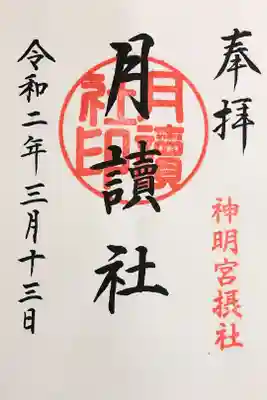 奉拝
神明宮摂社
月讀社
月讀社印
令和二年三月十三日